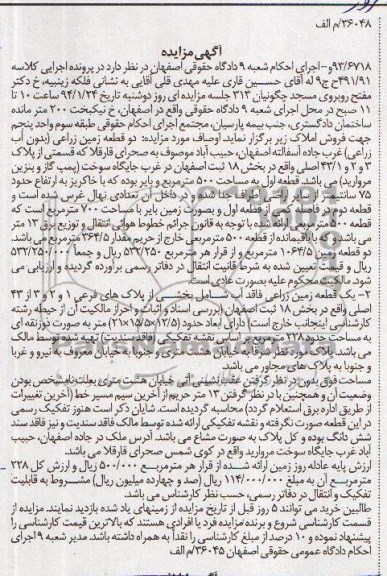 ۳۶۰۴۸/م الف
آگهی مزایده
۹۳/۶۷۱۸و-اجرای احکام شعبه ۹ دادگاه حقوقی اصفهان در نظر دارد در پرونده اجرایی کلاسه
۴۹۱/۹۱ح ج۹ له آقای حسین قاری علیه مهدی قلی آقایی به نشانی فلکه زینبیه، خ دکتر
مفتح روبروی مسجد چگونیان ۳۱۳ جلسه مزایده ای روز دوشنبه تاریخ ۹۴/۱/۲۴ ساعت ۱۰ تا
۱۱ صبح در محل اجرای شعبه ۹ دادگاه حقوقی واقع در اصفهان، خ نیکبخت ۲۰۰ متر مانده
ساختمان دادگستری، جنب بیمه پارسیان، مجتمع اجرای احکام حقوقی طبقه سوم واحد پنجم
جهت فروش املاک زیر برگزار نماید. اوصاف مورد مزایده: دو قطعه زمین زراعی (بدون آب
زراعی) غرب جاده آسفالته اصفهان، حبیب آباد موصوف به صحرای قارقالا که قسمتی از پلاک
۳ و ۲ و ۴۳/۱ اصلی واقع در بخش ۱۸ ثبت اصفهان در غرب جایگاه سوخت (پمپ گاز و بنزین
مروارید) می باشد. قطعه اول به مساحت ۵۰۰ مترمربع و بایر بوده که با خاکریز به ارتفاع حدود
۷۵ سانتیمتر از سایر اراضی اطراف جدا شده و در داخل آن تعدادی نهال غرس شده است و
قطعه دوم در فاصله شرق قطعه اول و بصورت زمین بایر با مساحت ۷۰۰ مترمربع است که
قطعه ۵۰۰ مترمربعی ارائه شده با توجه به قانون جرائم خطوط هوایی انتقال و توزیع برق ۱۳ متر
می باشد و که باقیمانده از قطعه ۵۰۰ مترمربعی خارج از حریم مقدار ۳۶۴/۵ مترمربع می باشد.
دو قطعه زمین جمعا ۱۰۶۴/۵ مترمربع و از قرار هر مترمربع ۵۳۲/۲۵۰ ریال و جمعا ۵۳۲/۲۵۰/۰۰۰
ریال و قیمت تعیین شده به شرط قابلیت انتقال در دفاتر رسمی برآورده گردیده و ارزیابی می
شود. مالکیت محکوم علیه بصورت عادی است
۲- یک قطعه زمین زراعی فاقد آب شامل بخشی از پلاک های فرعی ۱ و ۲ و ۳ از ۴۳
اصلی واقع در بخش ۱۸ ثبت اصفهان (بررسی اسناد و اثبات و احراز مالکیت آن از حیطه رشته
کارشناسی اینجانب خارج است) دارای ابعاد حدود (۱۲/۵×۱۵/۵×۲۱) متر به صورت ذوزنقه ای
به مساحت حدود ۲۲۸ مترمربع براساس نقشه تفکیکی (فاقد سندیت) تهیه شده توسط مالک
می باشد. پلاک مورد نظر شرقا به خیابان هشت متری و جنوبا به خیابان معروف به نیرو و غربا
و جنوبا به پلاک های مجاور می باشد.
مساحت فوق بدون در نظر گرفتن عقب نشینی آتی خیابان هشت متری بعلت نامشخص بودن
وضعیت آن و همچنین با در نظر گرفتن ۱۳ متر حریم از آخرین سیم مسیر خط (آخرین تغییرات
از طریق اداره برق استعلام گردد) محاسبه گردیده است. شایان ذکر است هنوز تفکیک رسمی
در این قطعه صورت نگرفته و نقشه تفکیکی ارائه شده توسط مالک فاقد سندیت و نیز فاقد سند
شش دانگ بوده و کل پلاک به صورت مشاع می باشد. آدرس ملک در جاده اصفهان، حبیب
آباد غرب جایگاه سوخت مروارید واقع در کوی شمس صحرای قارقالا می باشد.
ارزش پایه عادله روز زمین ارائه شده از قرار هر مترمربع ۵۰۰/۰۰۰ ریال و ارزش کل ۲۲۸
مترمربع آن به مبلغ ۱۱۴/۰۰۰/۰۰۰ ریال (صد و چهارده میلیون ریال) مشروط به قابلیت
تفکیک و انتقال در دفاتر رسمی، حسب نظر کارشناسی می باشد.
طالبین خرید می توانند ۵ روز قبل از تاریخ مزایده از زمینهای یاد شده بازدید نمایند. مزایده از
قسمت کارشناسی شروع و برنده مزایده فرد یا افرادی هستند که بالاترین قیمت کارشناسی را
پیشنهاد نموده و ۱۰ درصد از مبلغ کارشناسی را نقداً به همراه داشته باشد. مدیر شعبه ۹ اجرای
احکام دادگاه عمومی حقوقی اصفهان ۳۶۰۴۵/م الف